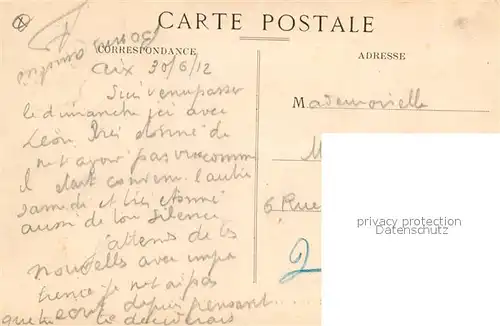 CARTE POSTALE
CORRESPONDANCE
ADRESSE
Aix 30/6/12
Suis venu passer
le dimanche ici avec
Léon. Très étonné de
ne t'avoir pas vue comme
il était convenu l'autre
samedi et très étonné
aussi de ton silence
J'attends de tes
nouvelles avec impa
tience je ne t'ai pas
depuis pensant
Mademoiselle
M
6 Rue
2
privacy protection
Datenschutz